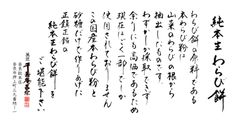 純本生わらび餅
わらび餅の原料である
本わらび粉は
山菜のわらびの根から
抽出したものです。
わずかしか採取できず
余りにも高価であるため
現在はごく一部でしか
使用されておりません
この国産本わらび粉と
砂糖だけで作りあげた
正銘正銘の
純本生わらび餅を
ご堪能下さい